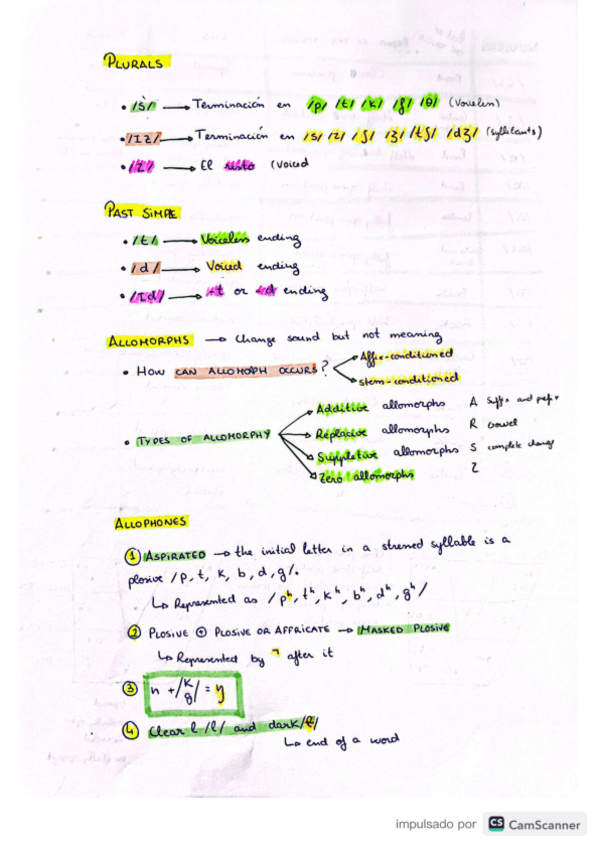 PLURALS
• /s/ → Terminación en /p/ /t/ /k/ /f/ /θ/ (Voiceless)
• /ɪz/ → Terminación en /s/ /z/ /ʃ/ /ʒ/ /tʃ/ /dʒ/ (syllibants)
• /z/ → El resto (Voiced
PAST SIMPLE
• /t/ → Voiceless ending
• /d/ → Voiced ending
• /ɪd/ → +t or +d ending
ALLOMORPHS → Change sound but not meaning
• HOW CAN ALLOMORPH OCCURS?
Affix-conditioned
stem-conditioned
• TYPES OF ALLOMORPHY
Additive allomorphs A Suffx and prefx
Replacive allomorphs R vowel
Suppletive allomorphs S complete change
Zero allomorphs Z
ALLOPHONES
① ASPIRATED → the initial letter in a stressed syllable is a
plosive /p, t, k, b, d, g/.
↳ Represented as /pʰ, tʰ, kʰ, bʰ, dʰ, gʰ/
② PLOSIVE ⊕ PLOSIVE OR AFFRICATE → MASKED PLOSIVE
↳ Represented by ̚ after it
③ n + /k g/ = ŋ
④ Clear l /l/ and dark /ɫ/
↳ end of a word
impulsado por CS CamScanner